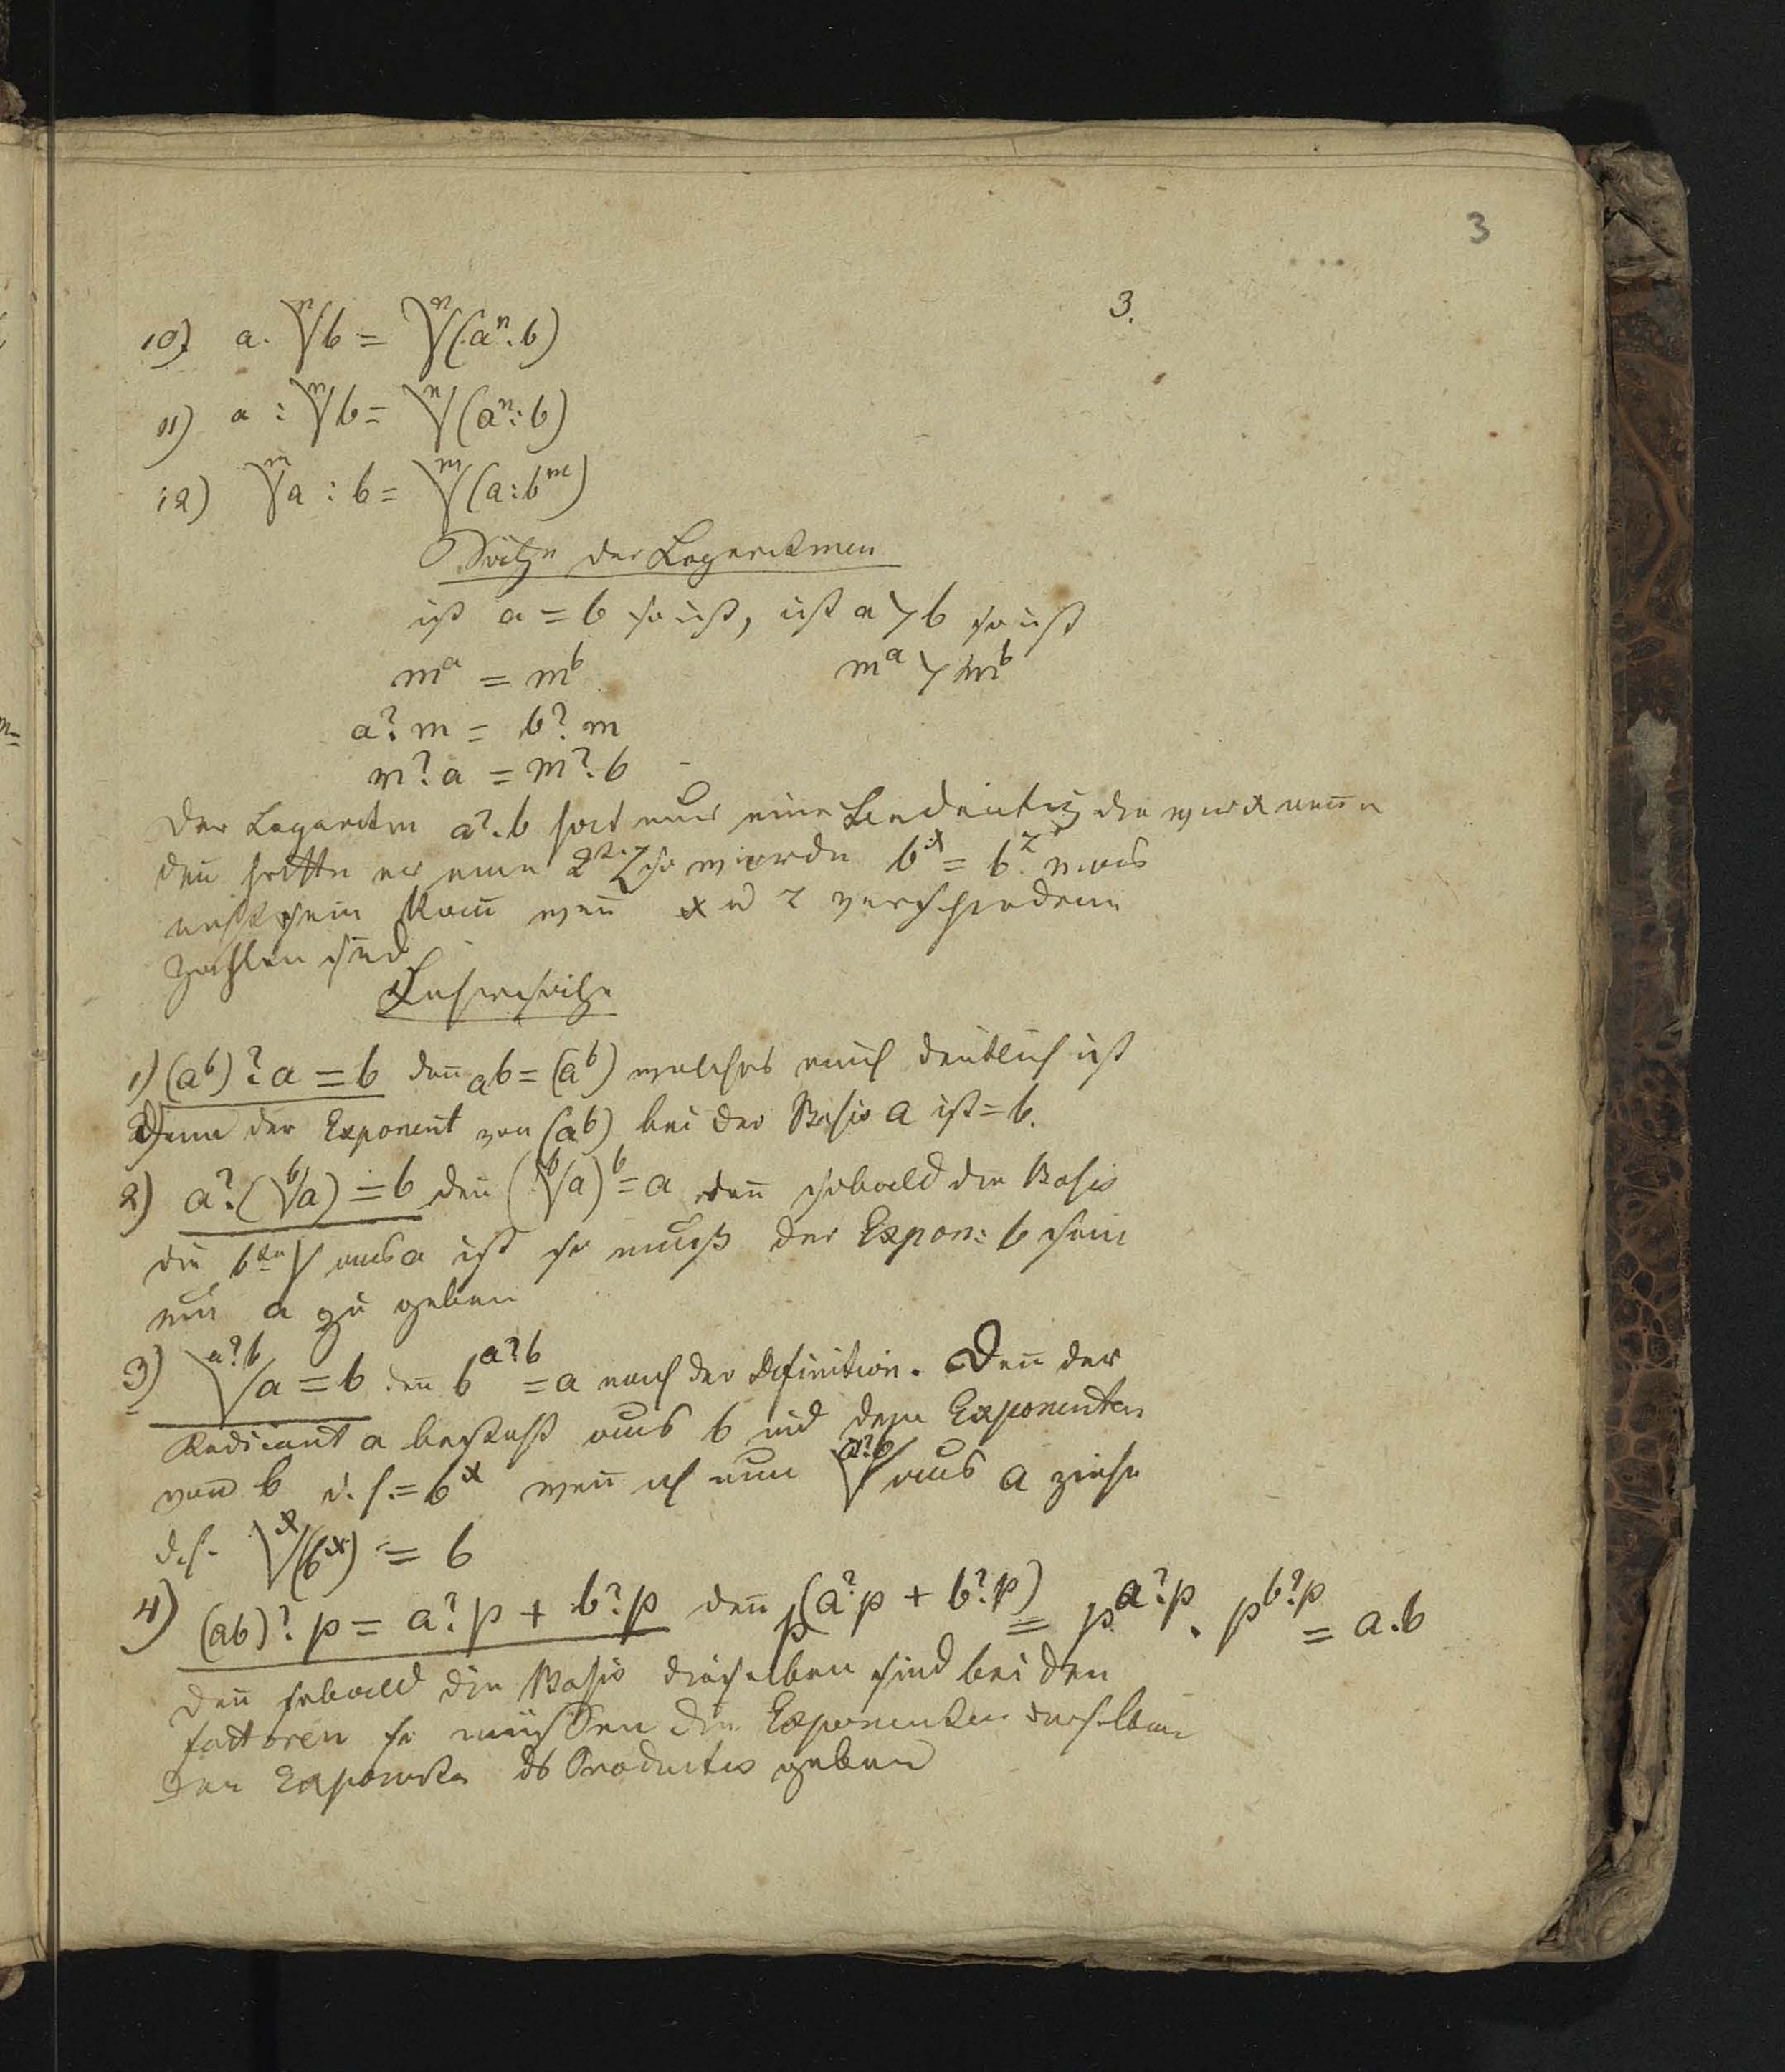 3
3.
10) a. ⁿ√b = ⁿ√(aⁿ.b)
11) a : ⁿ√b = ⁿ√(aⁿ:b)
12) ᵐ√a : b = ᵐ√(a:bᵐ)
Sätze der Logaritmen
ist a = b so ist, ist a > b so ist
mᵃ = mᵇ mᵃ > mᵇ
a?m = b?m
m?a = m?b
Der Logaritm a?b hat nur eine
den hätte er eine 2ᵗᵉ z so würde bˣ = bᶻ was
nicht sein kan wen x u z verschiedene
Zahlen sind
Lehrsätze
1) (aᵇ)?a = b den aᵇ = (aᵇ) welches auch deutlich ist
Denn der Exponent von (aᵇ) bei der Basis a ist = b.
2) a?(ᵇ√a) = b den (ᵇ√a)ᵇ = a den sobald die Basis
die bᵗᵉ √ aus a ist so muß der Expon: b sein
um a zu geben
3) ᵃ?ᵇ√a = b den bᵃ?ᵇ = a nach der Definition. Den der
Radicant a besteht aus b und dem Exponenten
von b d.h. = bˣ wen ich nun ᵃ?ᵇ√ aus a ziehe
d.h. ˣ√(bˣ) = b
4) (ab)?p = a?p + b?p den p^(a?p + b?p) = p^a?p . p^b?p = a.b
den sobald die Basis dieselben sind bei den
factoren so müssen die Exponenten derselben
den Exponenten ds Productes geben